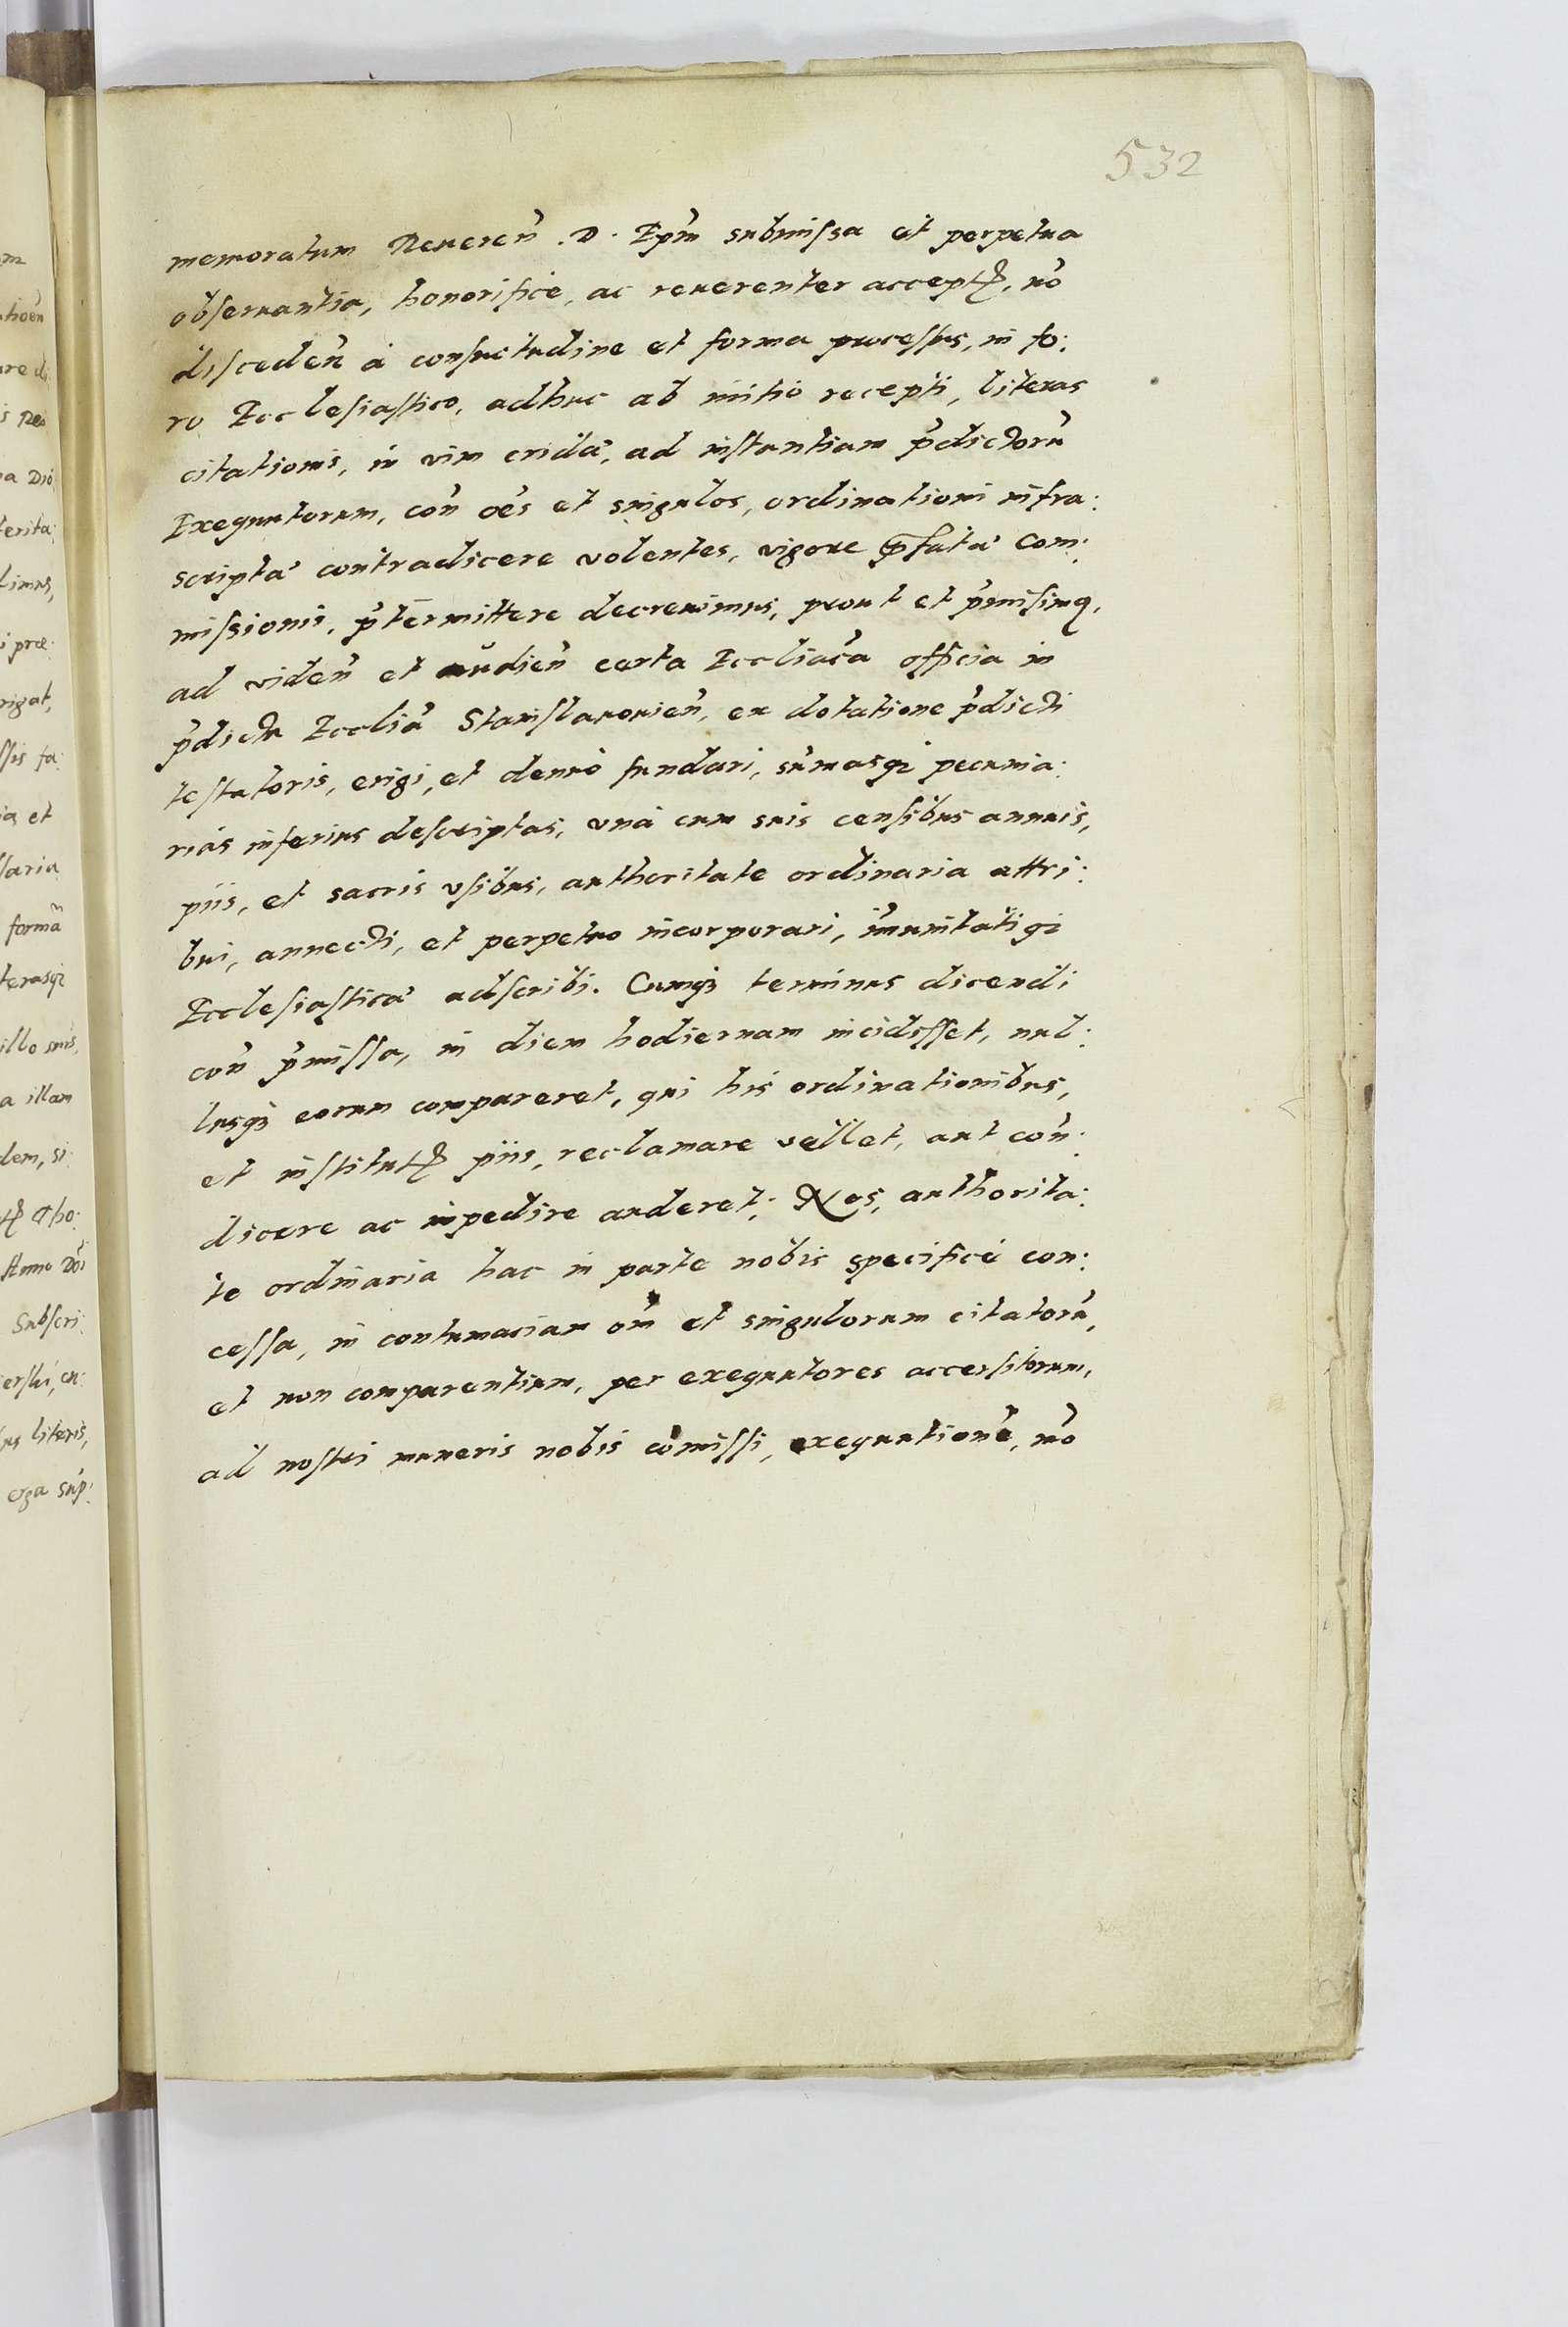 532
memoratum Reueren̄ . D . Ep̄m submissa et perpetua
obseruantia, honorificè, ac reuerenter acceptꝭ, nō
disceden̄ à consuetudine et forma processus, in fo:
ro Ecclesiastico, adhuc ab initio recepti, literas
citationis, in vim cridæ, ad instantiam p̄dictorū
Exequutorum, con̄ oēs et singulos, ordinationi infra:
scriptæ contradicere volentes, vigore p̄fatæ Com:
missionis, p̄termittere decreuimus, prout et p̄misimq,
ad viden̄ et audien̄ certa Eccliāca officia in
p̄dicta Ecclīa Stanislauouien̄, ex dotatione p̄dicti
testatoris, erigi, et denuò fundari, sūmasq; pecunia:
rias inferius descriptas, vnà cum suis censibus annuis,
piis, et sacris vsibus, authoritate ordinaria attri:
bui, annecti, et perpetuo incorporari, im̄unitatiq;
Ecclesiasticæ adscribi. Cumq; terminus dicendi
con̄ p̄missa, in diem hodiernam incidisset, nul:
lusq; eorum compareret, qui his ordinationibus,
et institutꝭ piis, reclamare vellet, aut con̄:
dicere ac inpedire auderet; Nos, authorita:
te ordinaria hac in parte nobis specificè con:
cessa, in contumaciam om̄ et singulorum citatorū,
et non comparentium, per exequutores accersitorum,
ad nostri muneris nobis cōmissi, exequutionē, nō